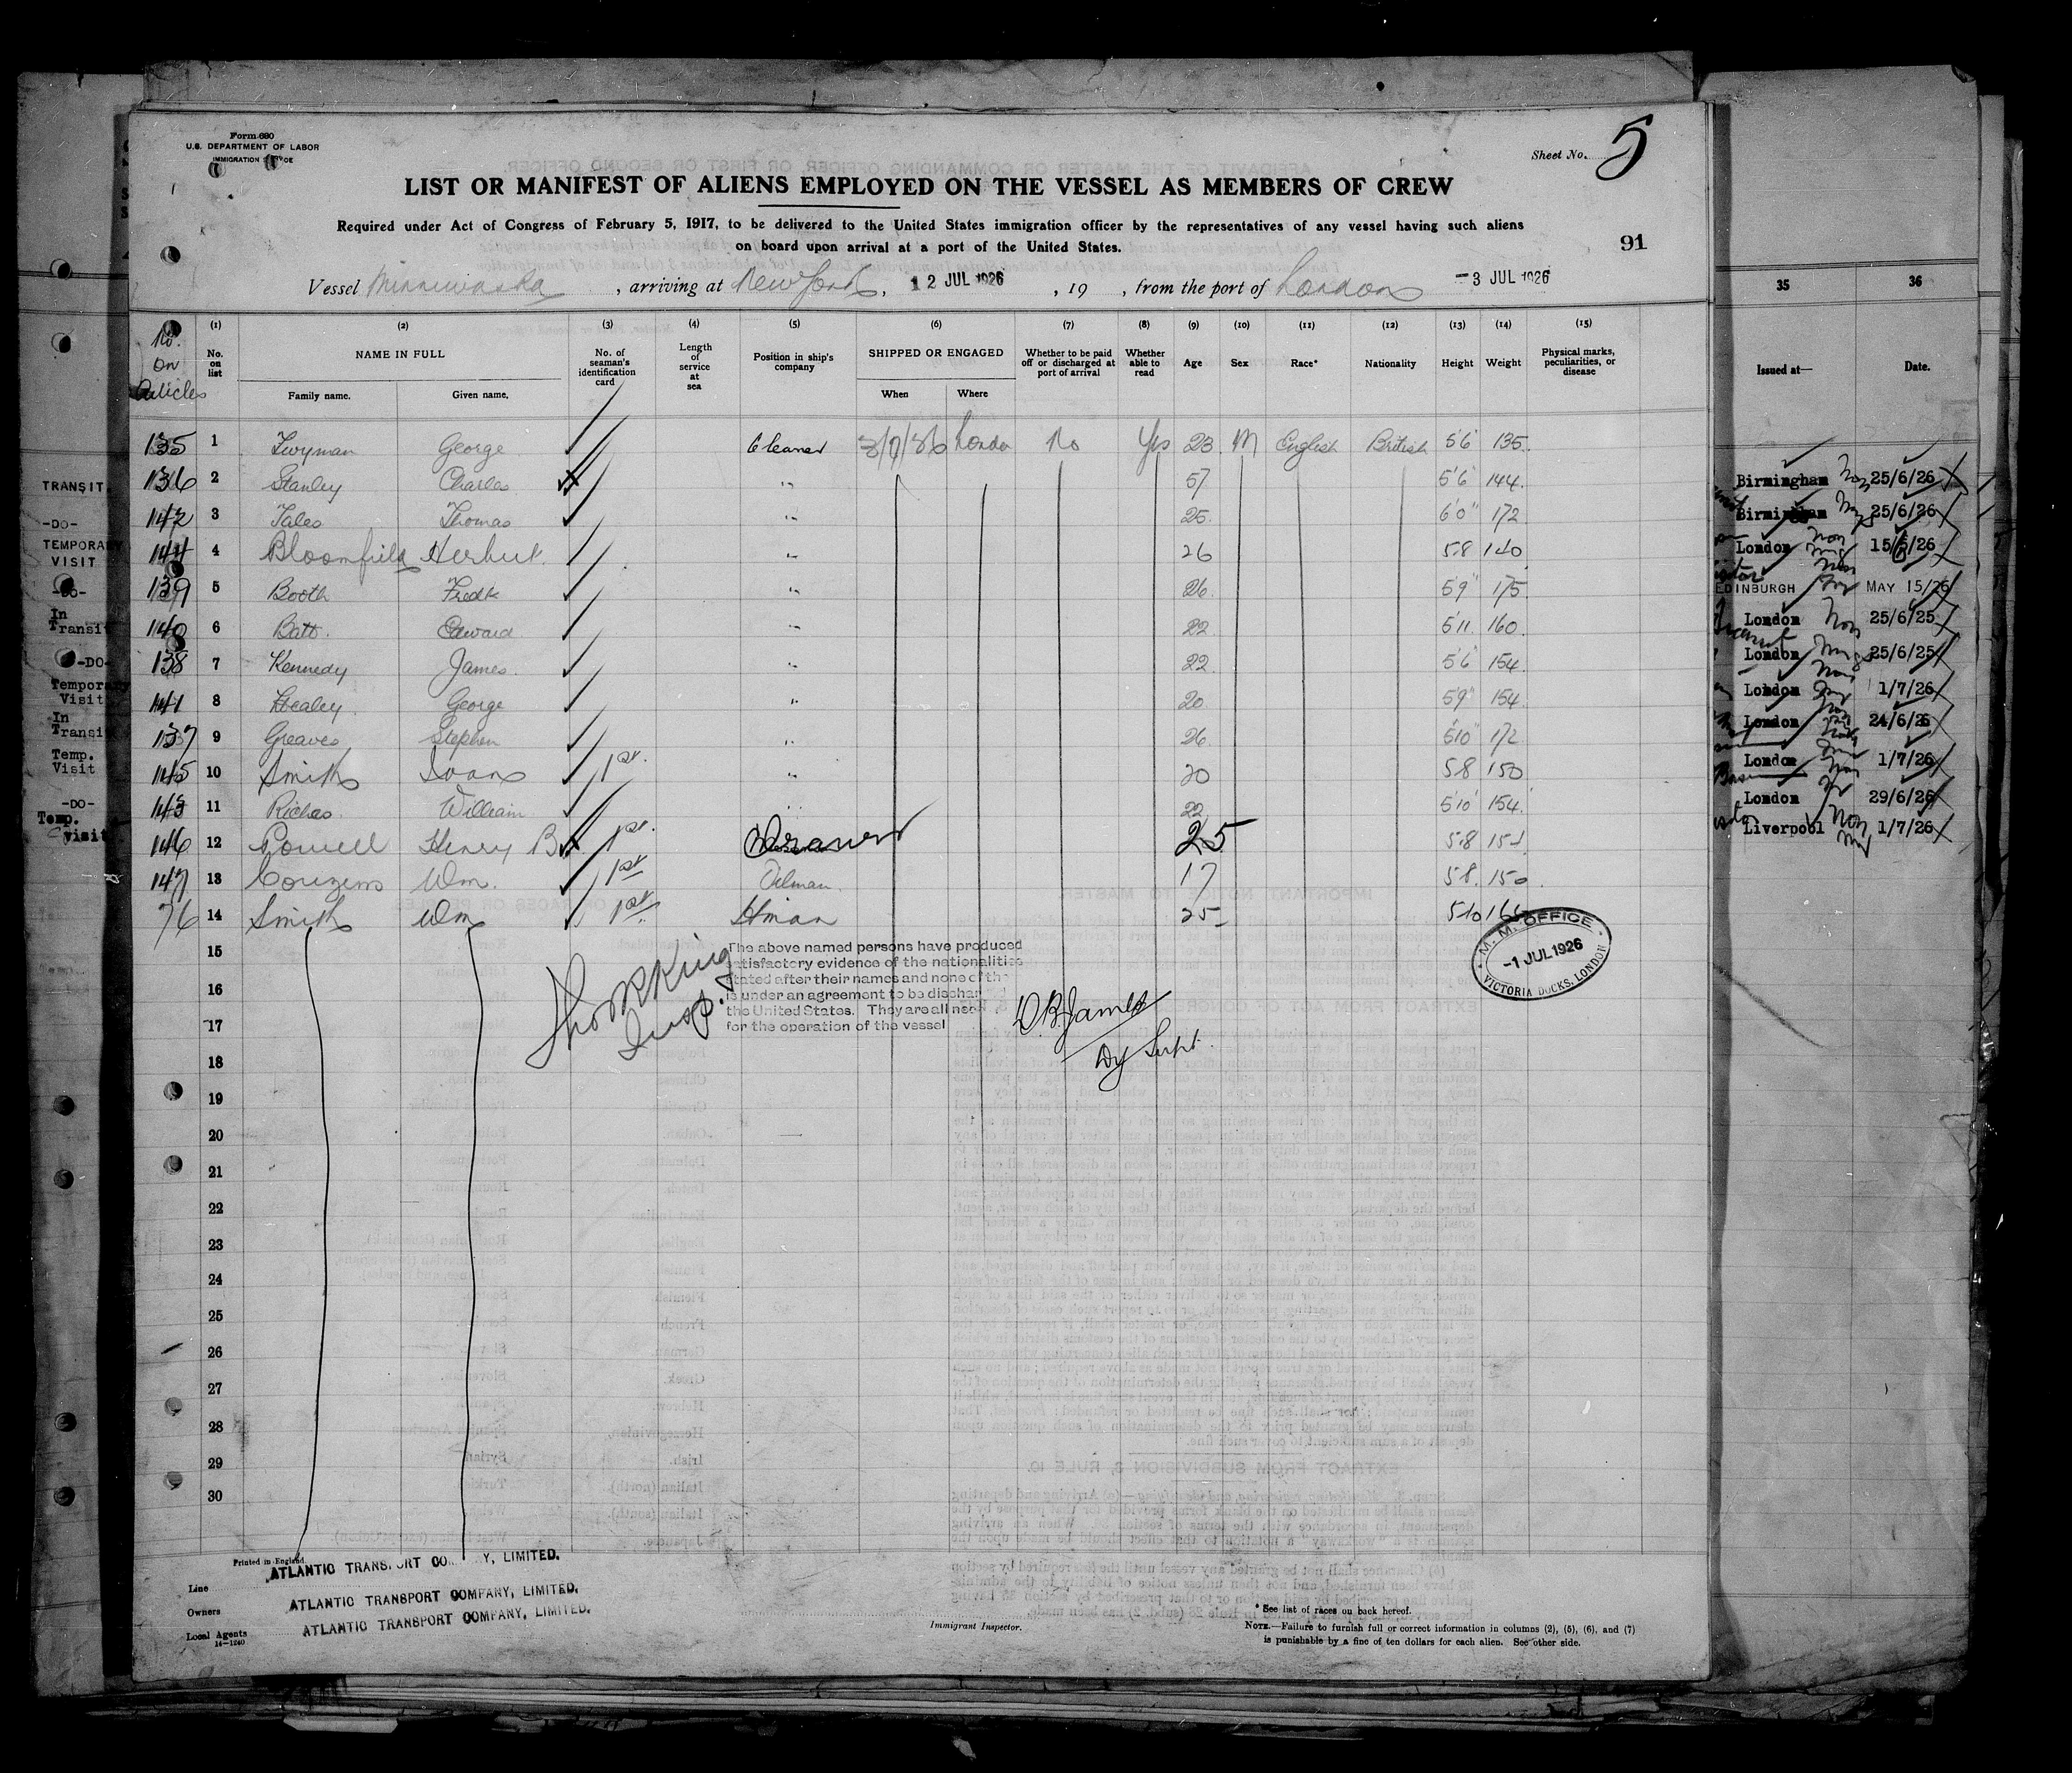 Form 680
U.S. DEPARTMENT OF LABOR
IMMIGRATION
Sheet No. 5
LIST OR MANIFEST OF ALIENS EMPLOYED ON THE VESSEL AS MEMBERS OF CREW
Required under Act of Congress of February 5, 1917, to be delivered to the United States immigration officer by the representatives of any vessel having such aliens
on board upon arrival at a port of the United States.
91
Vessel Minnewaska, arriving at New York, 12 JUL 1926, 19 , from the port of London -3 JUL 1926
No. on Articles
(1) (2) (3) (4) (5) (6) (7) (8) (9) (10) (11) (12) (13) (14) (15)
No. on list
NAME IN FULL
Family name. Given name.
No. of seaman's identification card
Length of service at sea
Position in ship's company
SHIPPED OR ENGAGED
When Where
Whether to be paid off or discharged at port of arrival
Whether able to read
Age
Sex
Race*
Nationality
Height
Weight
Physical marks, peculiarities, or disease
135 1 Twyman George Cleaner London No Yes 23 M English British 5'6 135
136 2 Stanley Charles " 57 5'6 144
142 3 Thomas " 25 6'0" 172
144 4 Bloomfield Herbert " 26 5.8 140
139 5 Booth Fredk " 26 5'9" 175
140 6 Batt Edward " 22 5'11 160
138 7 Kennedy James " 22 5'6 154
141 8 Healey George " 20 5'9" 154
137 9 Greaves Stephen " 26 5'10" 172
145 10 Smith 1st " 20 5.8 150
143 11 Riches William " 22 5'10 154
146 12 Powell Henry B 1st 25 5.8 154
147 13 Couzens Wm. 1st Oilman 17 5.8 150
76 14 Smith Wm 1st 25 5.10
15
16
17
18
19
20
21
22
23
24
25
26
27
28
29
30
The above named persons have produced
satisfactory evidence of the nationalities
stated after their names and none of th
is under an agreement to be dischar
the United States. They are all nec
for the operation of the vessel
Insp.
D.B. James
Dy Supt.
M. M. OFFICE
-1 JUL 1926
VICTORIA DOCKS, LONDON
Printed in England.
Line ATLANTIC TRANSPORT COMPANY, LIMITED.
Owners ATLANTIC TRANSPORT COMPANY, LIMITED.
Local Agents ATLANTIC TRANSPORT COMPANY, LIMITED.
14-1240
Immigrant Inspector.
* See list of races on back hereof.
NOTE.—Failure to furnish full or correct information in columns (2), (5), (6), and (7)
is punishable by a fine of ten dollars for each alien. See other side.
TRANSIT
-DO-
TEMPORARY
VISIT
-DO-
In
Transit
-DO-
Temporary
Visit
In
Transit
Temp.
Visit
-DO-
Temp.
visit
35 36
Issued at— Date.
Birmingham 25/6/26
Birmingham 25/6/26
London 15/6/26
EDINBURGH MAY 15/26
London 25/6/25
London 25/6/25
London 1/7/26
London 24/6/26
London 1/7/26
London 29/6/26
Liverpool 1/7/26